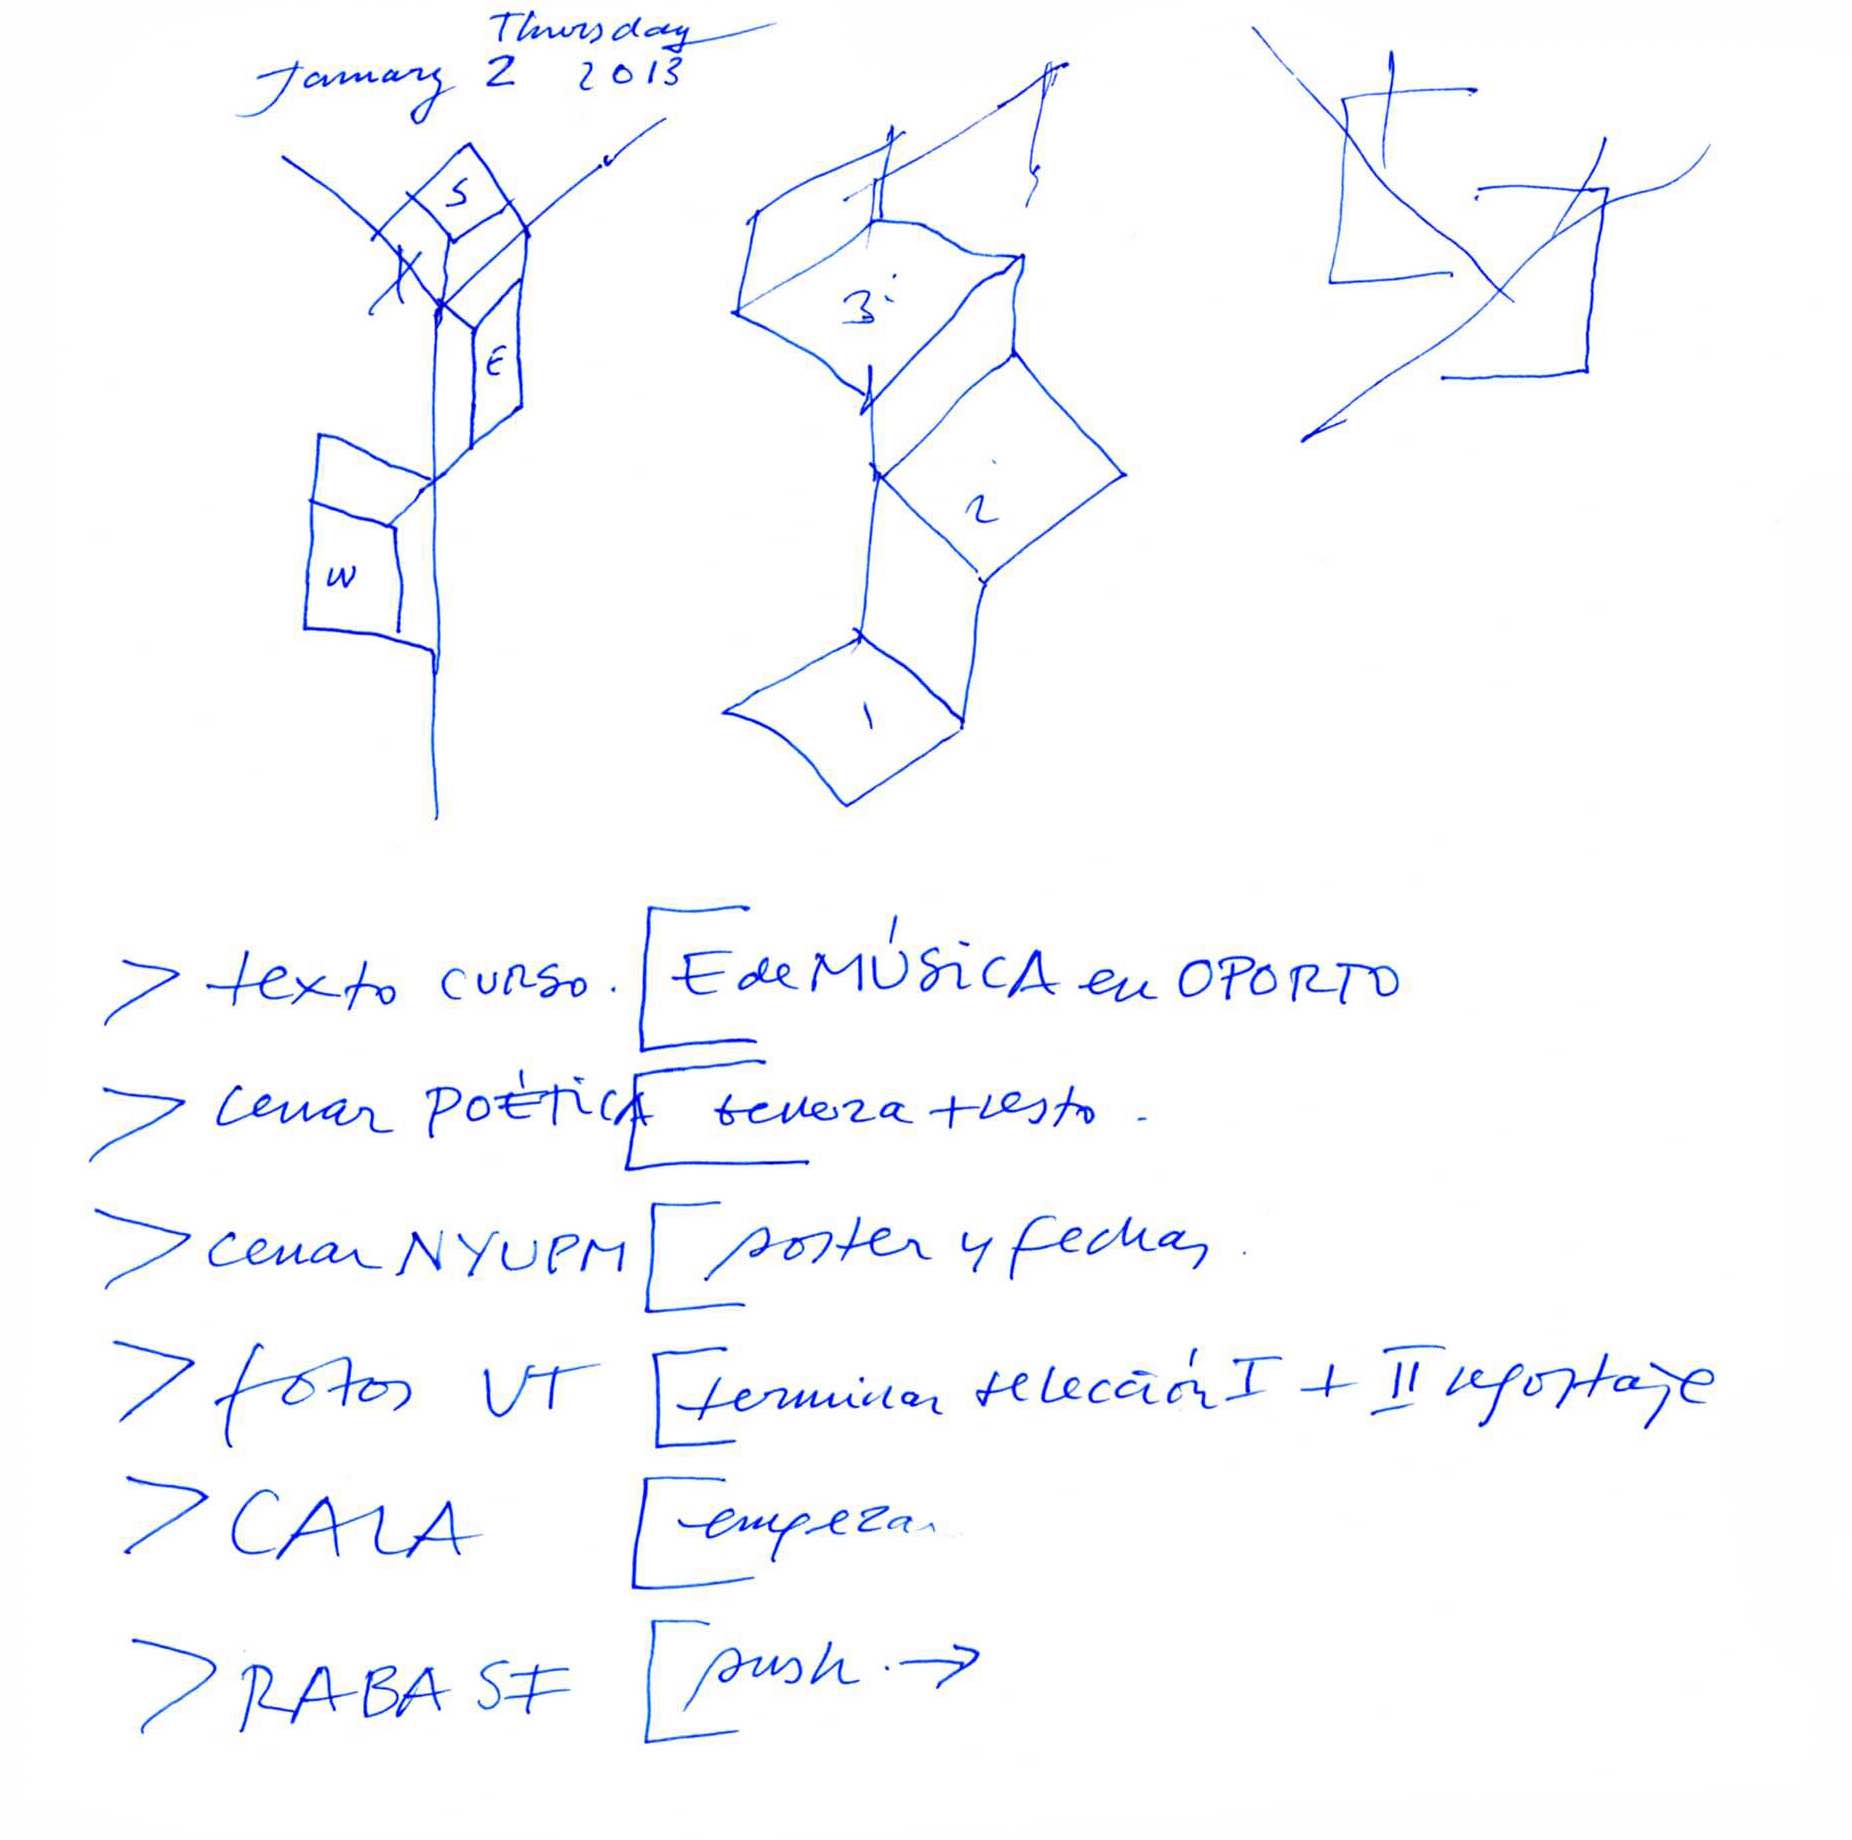 Thursday
January 2 2013
S
E
W
3
2
1
> texto curso. [E de MÚSICA en OPORTO
> cerrar POÉTICA [ + resto.
> cerrar NYUPM [poster y fechas.
> fotos VT [terminar selección I + II reportaje
> CALA [empezar
> RABASF [push. →